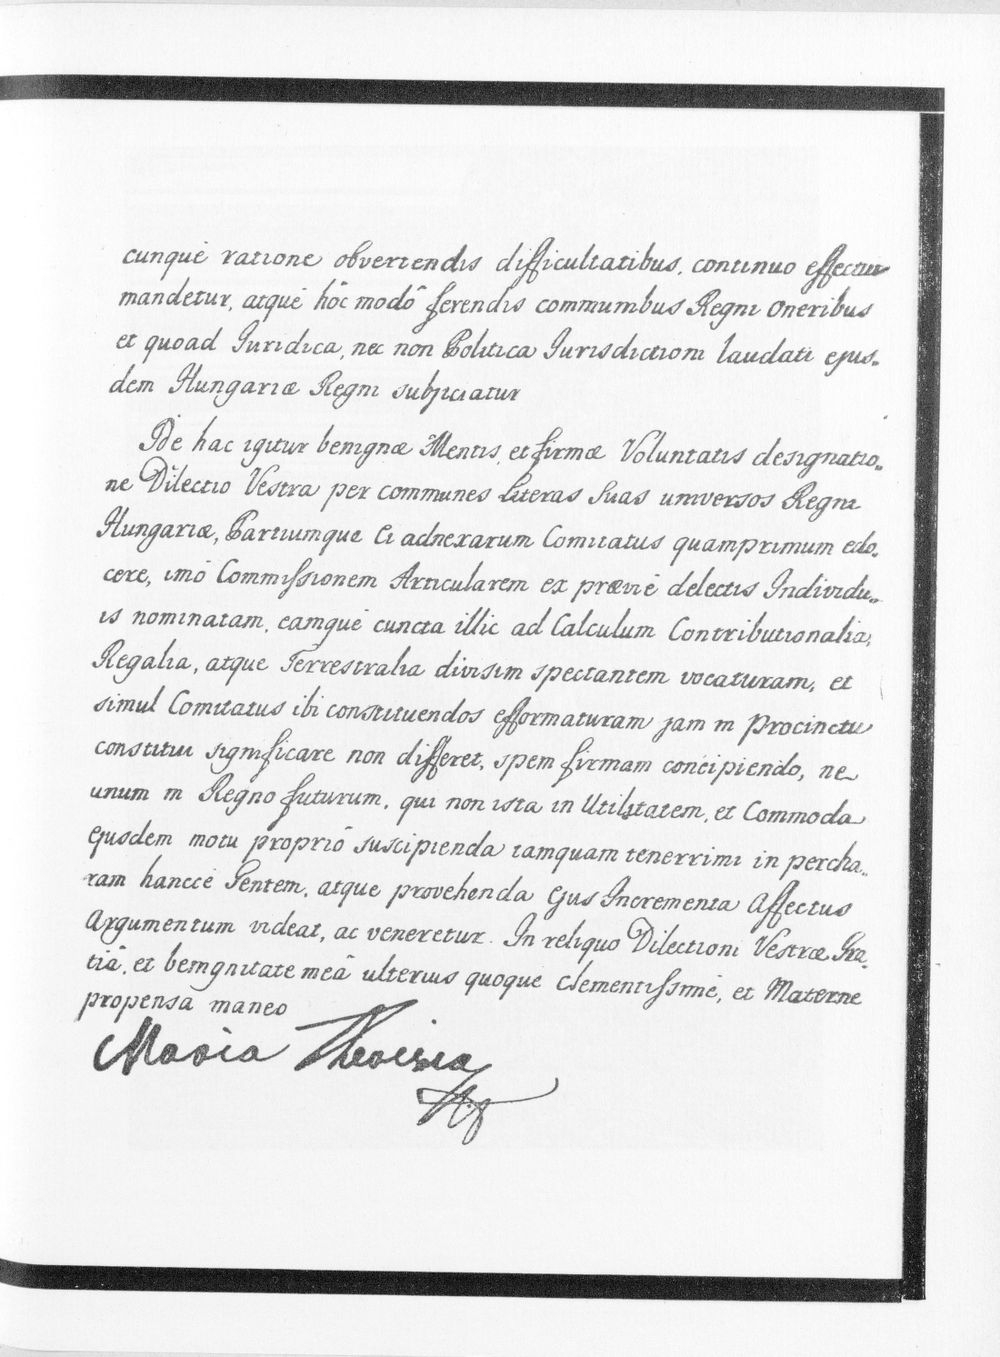 cunquè ratione obvertendis difficultatibus, continuo effectui
mandetur, atquè hôc modô ferendis communibus Regni oneribus
et quoad Juridica, nec non Politica Jurisdictioni laudati ejus-
dem Hungariæ Regni subjiciatur
De hac igitur benignæ Mentis, et firmæ Voluntatis designatio-
ne Dilectio Vestra per communes Literas Suas universos Regni
Hungariæ, Partiumque Ei adnexarum Comitatus quamprimum edo-
cere, imò Commissionem Articularem ex præviè delectis Individu-
is nominatam, eamquè cuncta illic ad Calculum Contributionalia,
Regalia, atque Terrestralia divisim spectantem vocaturam, et
simul Comitatus ibi constituendos efformaturam jam in procinctu
constitui significare non differet, spem firmam concipiendo, ne-
unum in Regno futurum, qui non ista in Utilitatem, et Commoda
ejusdem motu propriô suscipienda tamquam tenerrimi in percha-
ram hancce Gentem, atque provehenda ejus Incrementa Affectus
Argumentum videat, ac veneretur. In reliquo Dilectioni Vestræ Gra-
tiâ, et benignitate meâ ulterius quoque clementissimè, et Materne
propensa maneo
Maria Theresia